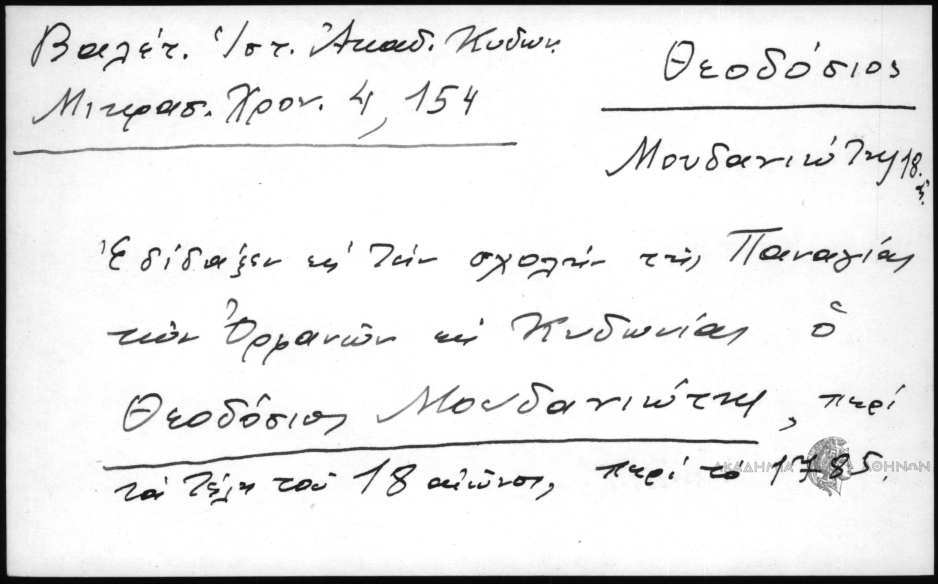 Βαλέτ. Ἱστ. Ἀκαδ. Κυδων.
Μικρασ. Χρον. 4, 154
Θεοδόσιος
Μουδανιώτης 18.
Ἐδίδαξεν εἰς τὴν σχολὴν τῆς Παναγίας
τῶν Ὀρφανῶν εἰς Κυδωνίας ὁ
Θεοδόσιος Μουδανιώτης, περὶ
τὰ τέλη τοῦ 18 αἰῶνος, περὶ τὸ 1785.
ΑΚΑΔΗΜΙΑ ΑΘΗΝΩΝ